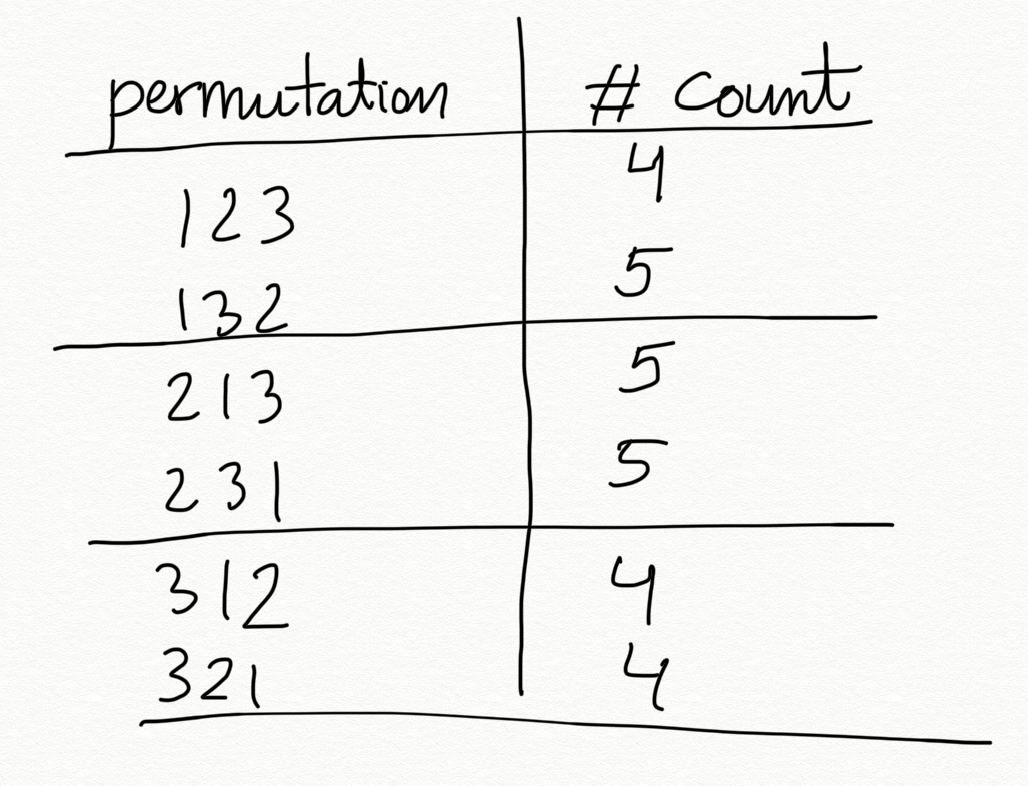 permutation # count
123 4
132 5
213 5
231 5
312 4
321 4